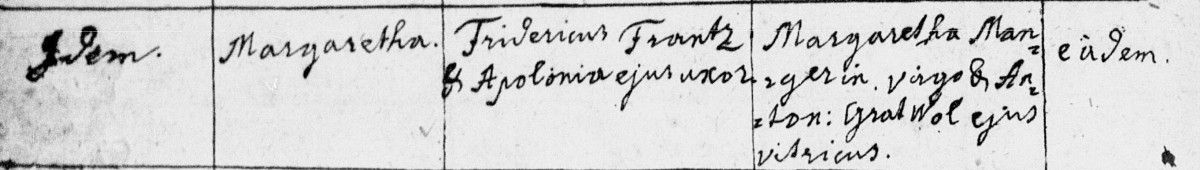 Idem.
Margaretha.
Fridericus Frantz
& Apolonia ejus uxor.
Margaretha Man=
=gerin. virgo & An=
=ton: Gratwol ejus
vitricus.
eâdem.